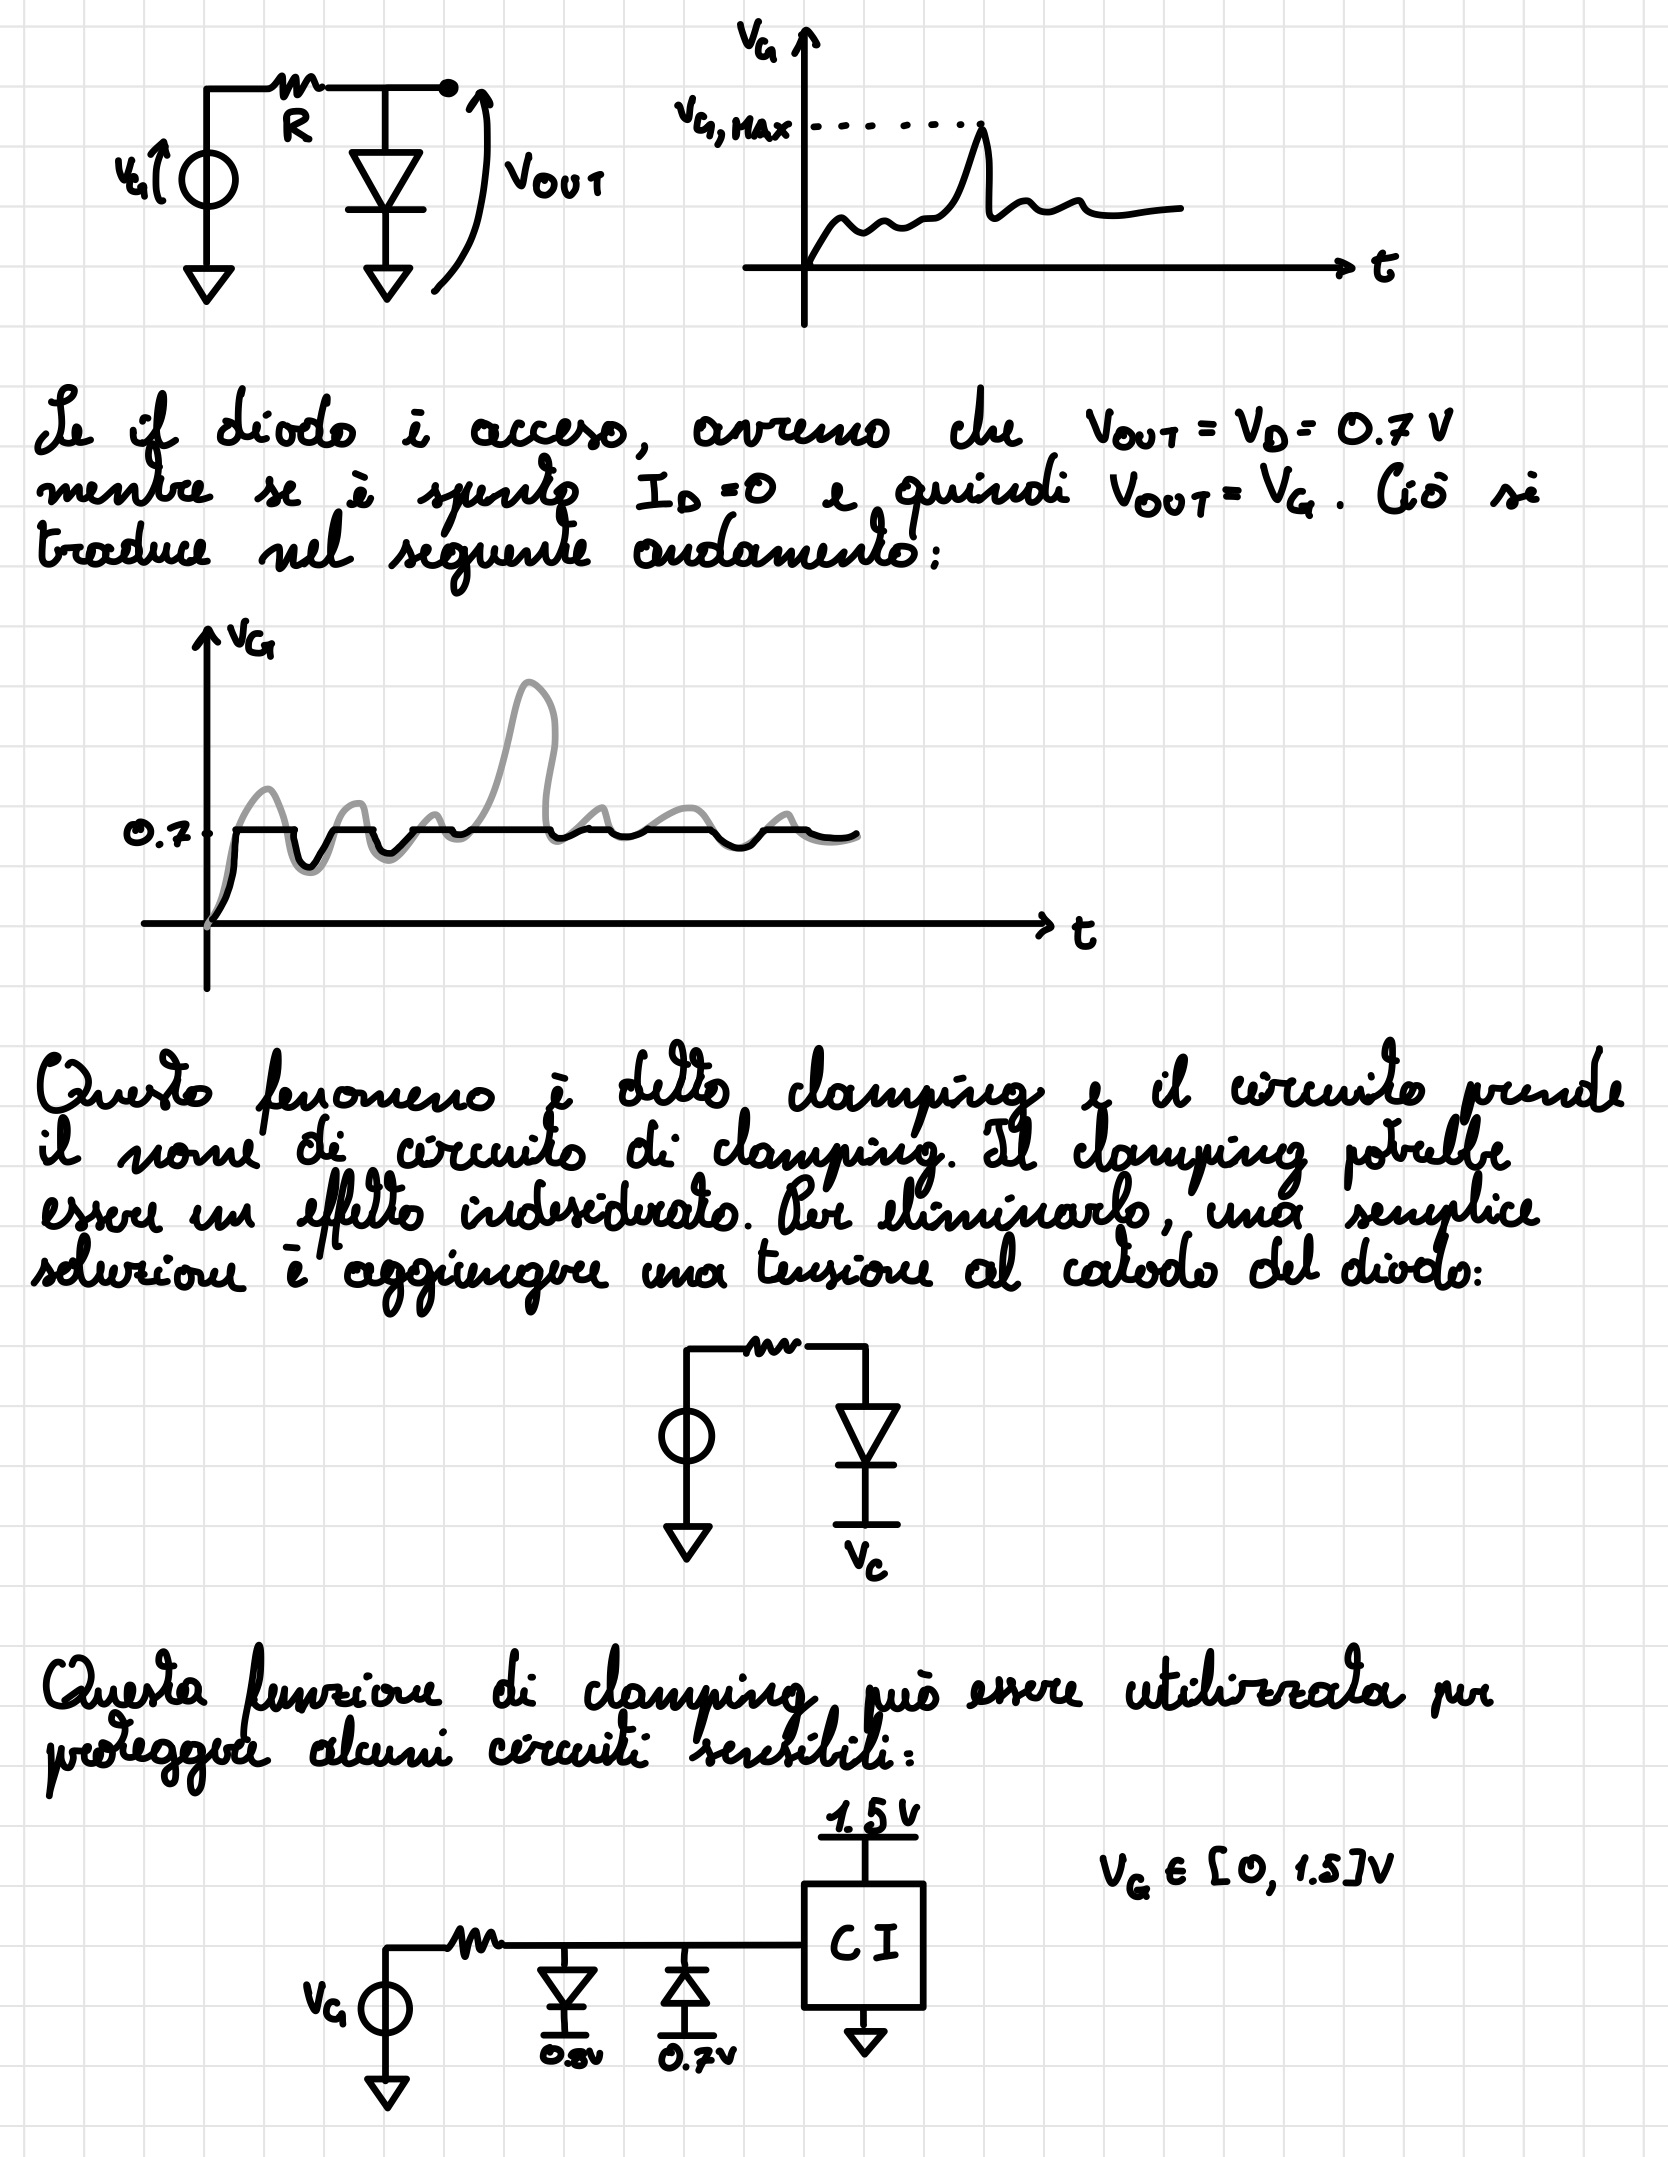 V_G
V_G,MAX
R
V_G
V_OUT
t
Se il diodo è acceso, avremo che V_OUT = V_D = 0.7 V
mentre se è spento I_D = 0 e quindi V_OUT = V_G. Ciò si
traduce nel seguente andamento:
V_G
0.7
t
Questo fenomeno è detto clamping e il circuito prende
il nome di circuito di clamping. Il clamping potrebbe
essere un effetto indesiderato. Per eliminarlo, una semplice
soluzione è aggiungere una tensione al catodo del diodo:
V_C
Questa funzione di clamping può essere utilizzata per
proteggere alcuni circuiti sensibili:
1.5 V
V_G ∈ [0, 1.5]V
CI
V_G
0.8V 0.7V